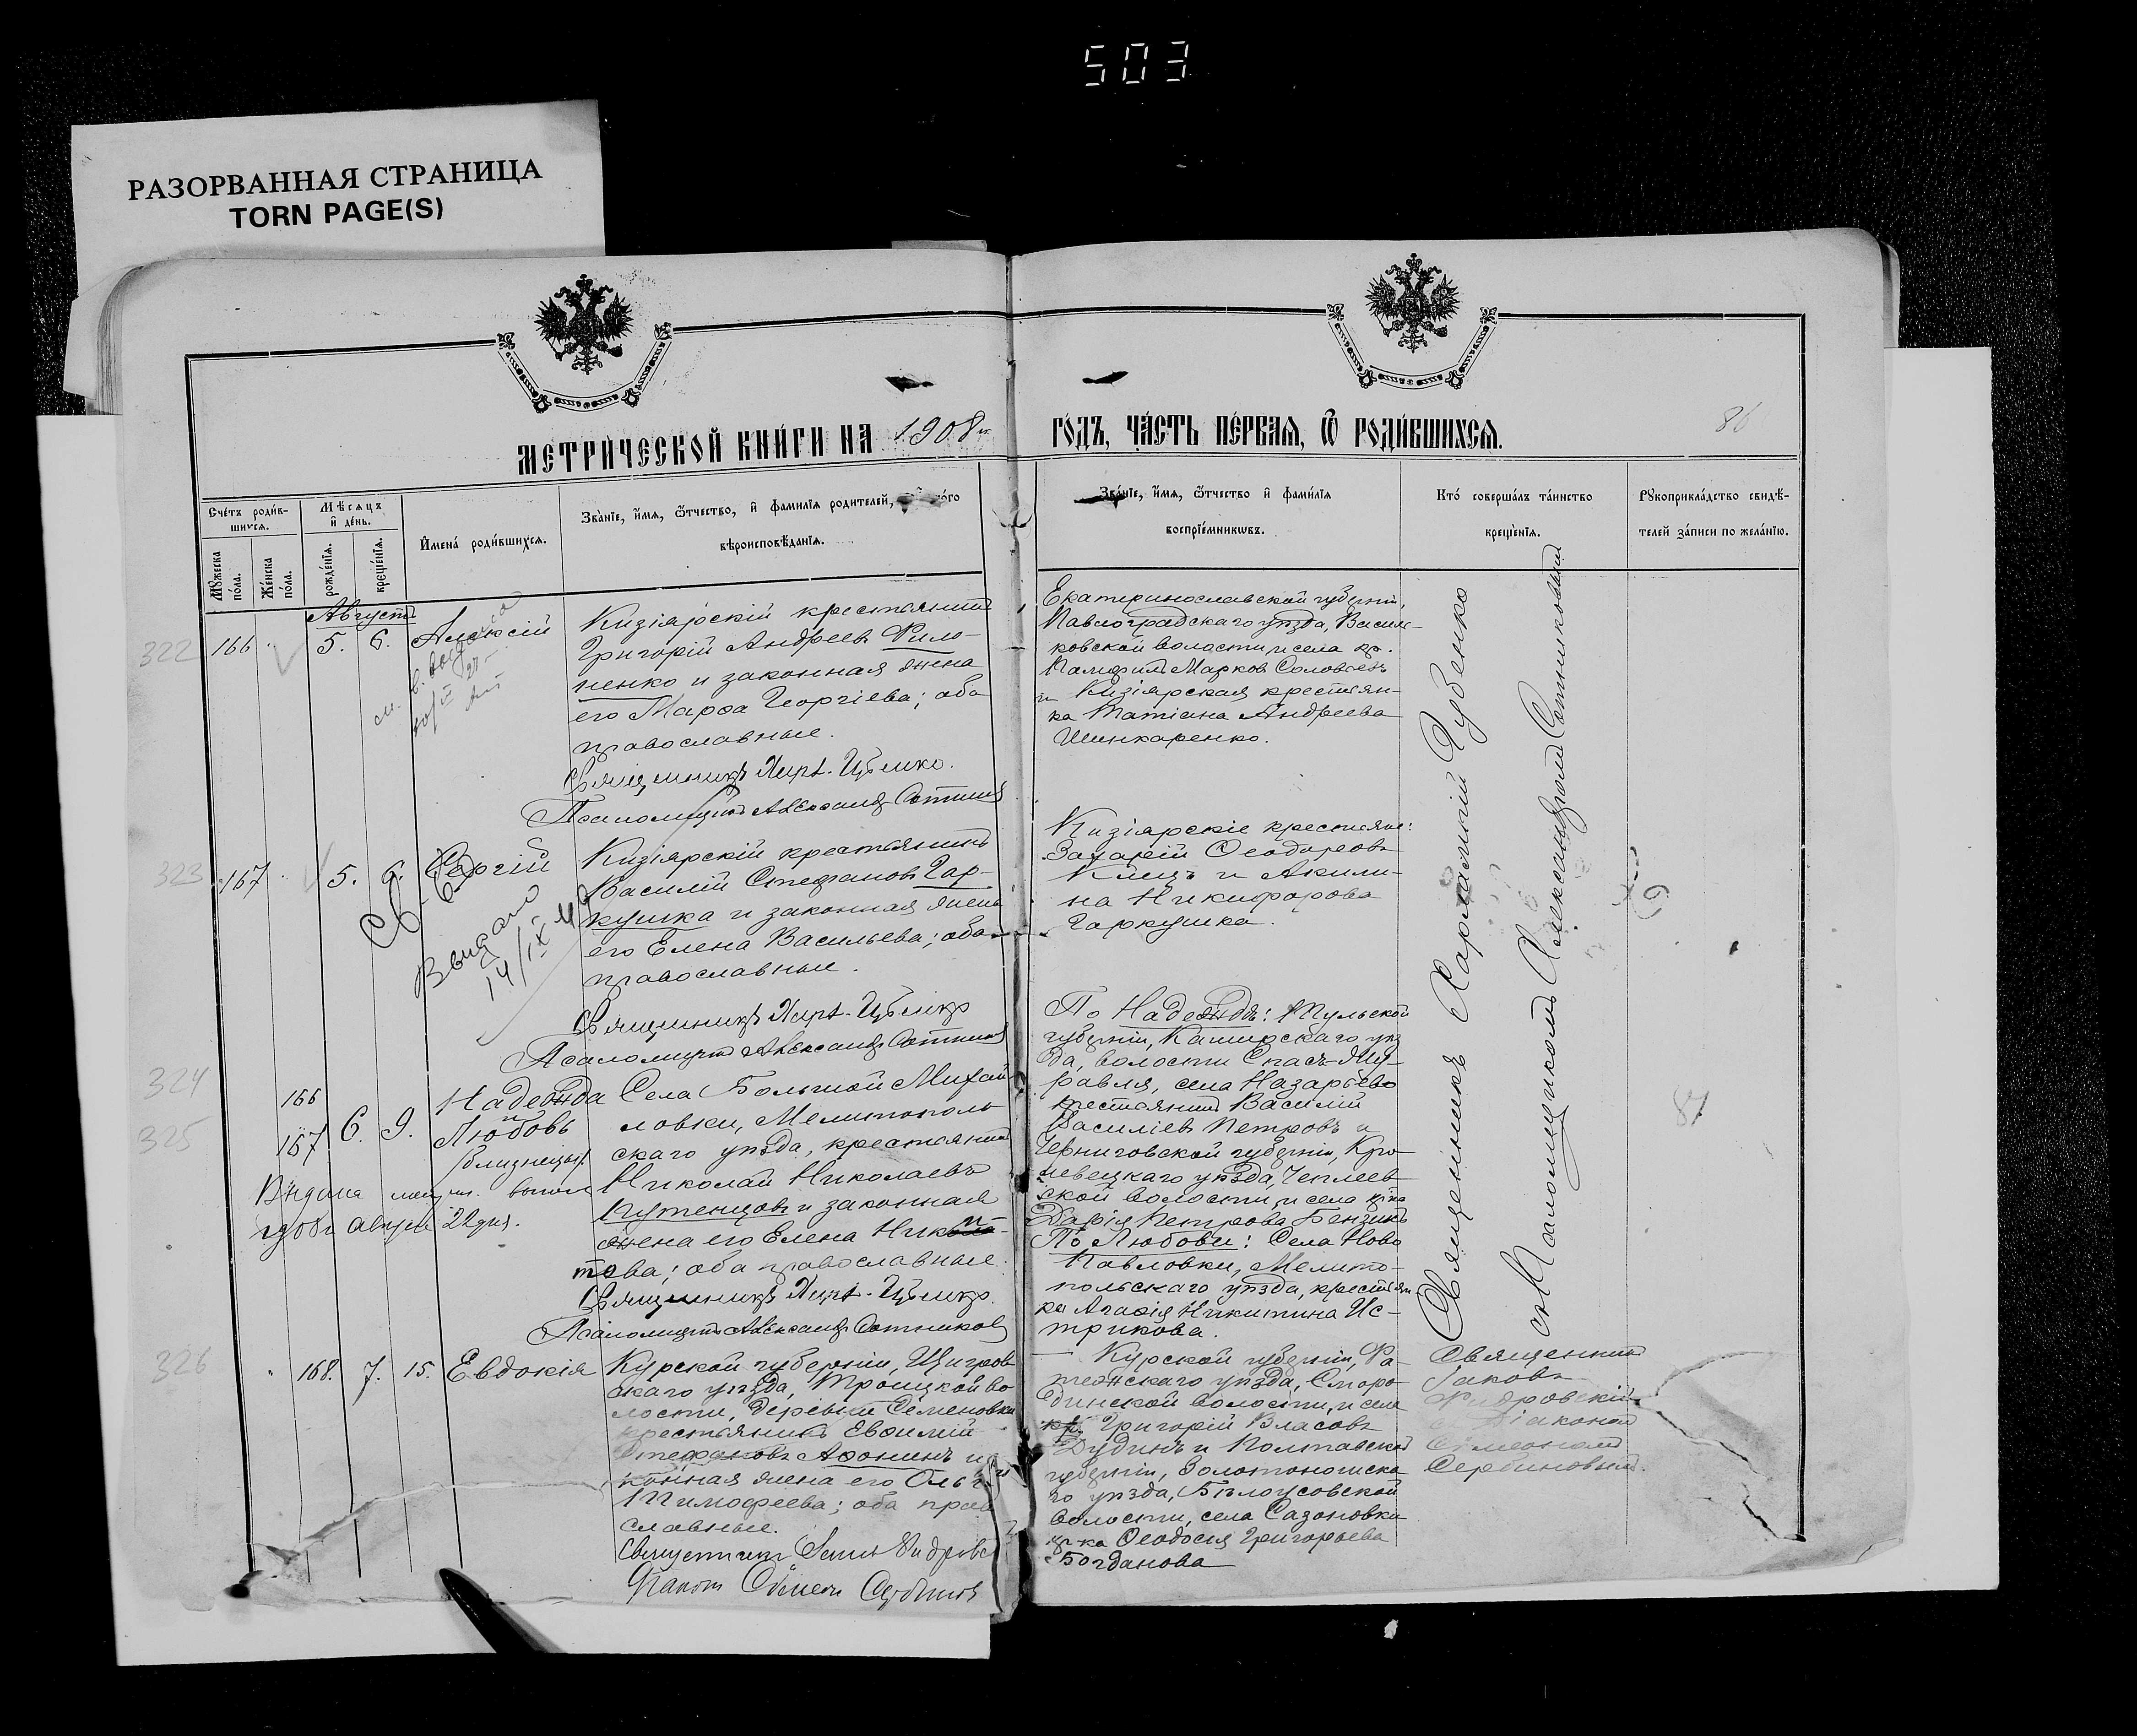 503
РАЗОРВАННАЯ СТРАНИЦА
TORN PAGE(S)
МЕТРИ́ЧЕСКОЙ КНИ́ГИ НА 1908 г.
ГО́ДЪ, ЧА́СТЬ ПЕ́РВАЯ, Ѿ РОДИ́ВШИХСЯ.
86
Сче́тъ роди́в-
шихся.
Мѣсяцъ
и де́нь.
Имена́ роди́вшихся.
Зва́нїе, и́мя, ѻ́тчество, и фами́лїя родителей,
вѣроисповѣ́данїя.
Му́жеска
по́ла.
Же́нска
по́ла.
рожде́нїя.
креще́нїя.
Зва́нїе, и́мя, ѻ́тчество и фами́лїя
воспрїе́мниковъ.
Кто́ соверша́лъ та́инство
креще́нїя.
Рукоприкла́дство свидѣ́-
телей за́писи по жела́нїю.
Августъ
322
166
5. 6. Алексій
Кизіярскій крестьянинъ
Григорій Андреевъ Фило-
ненко и законная жена
его Марѳа Георгіева; оба
православные.
Священникъ Харл. Цѣлико
Псаломщикъ Александръ Сотник
Екатеринославской губерніи,
Павлоградскаго уѣзда, Василь-
ковской волости, и села кр.
Памфилъ Марковъ Соловьевъ
и Кизіярская крестьян-
ка Татіана Андреева
Шинкаренко.
323
167
5. 6. Сергій
Выдано
14/IX
Кизіярскій крестьянинъ
Василій Стефановъ Гар-
кушка и законная жена
его Елена Васильева; оба
православные.
Священникъ Харл.
Псаломщикъ Александръ Сотник
Кизіярскіе крестьяне:
Захарій Ѳеодоровъ
Клецъ и Акили-
на Никифорова
Гаркушка.
324
325
166
167
6. 9.
Надежда
и
Любовь
(близнецы)
Выдана
1908 г. августа 22 дня.
Села Большой Михай-
ловки, Мелитополь-
скаго уѣзда, крестьянинъ
Николай Николаевъ
Путенцовъ и законная
жена его Елена Ники-
това; оба православные.
Священникъ Харл.
Псаломщикъ Александръ Сотниковъ
По Надеждѣ: Тульской
губерніи, Каширскаго уѣз
да, волости Спасъ-Жу-
равля, села Назарьево
крестьянинъ Василій
Василіевъ Петровъ и
Черниговской губерніи, Кро-
левецкаго уѣзда, Чеплеев-
ской волости, и села
Дарія Петрова Бензикъ
По Любови: Села Ново
Павловки, Мелито-
польскаго уѣзда, крестьян-
ка Агафія Никитина Ис-
трикова.
Священникъ Харлампій
съ Псаломщикомъ Александромъ Сотниковымъ
87
326
168. 7. 15. Евдокія
Курской губерніи, Щигров-
скаго уѣзда, Троицкой во
лости, деревни Семеновки
крестьянинъ Евѳимій
Стефановъ Аѳонинъ и
конная жена его Ольга
Тимофеева; оба право
славные.
Священникъ
Діаконъ Симеонъ Сербиновъ
Курской губерніи, Фа-
тежскаго уѣзда, Сморо-
динской волости, и села
кр. Григорій Власовъ
Дудинъ и Полтавской
губерніи, Золотоношска
го уѣзда, Бѣлоусовской
волости, села Сазоновки
кр-ка Ѳеодосія Григорьева
Богданова
Священникъ
Іаковъ
діакономъ
Симеономъ
Сербиновымъ.